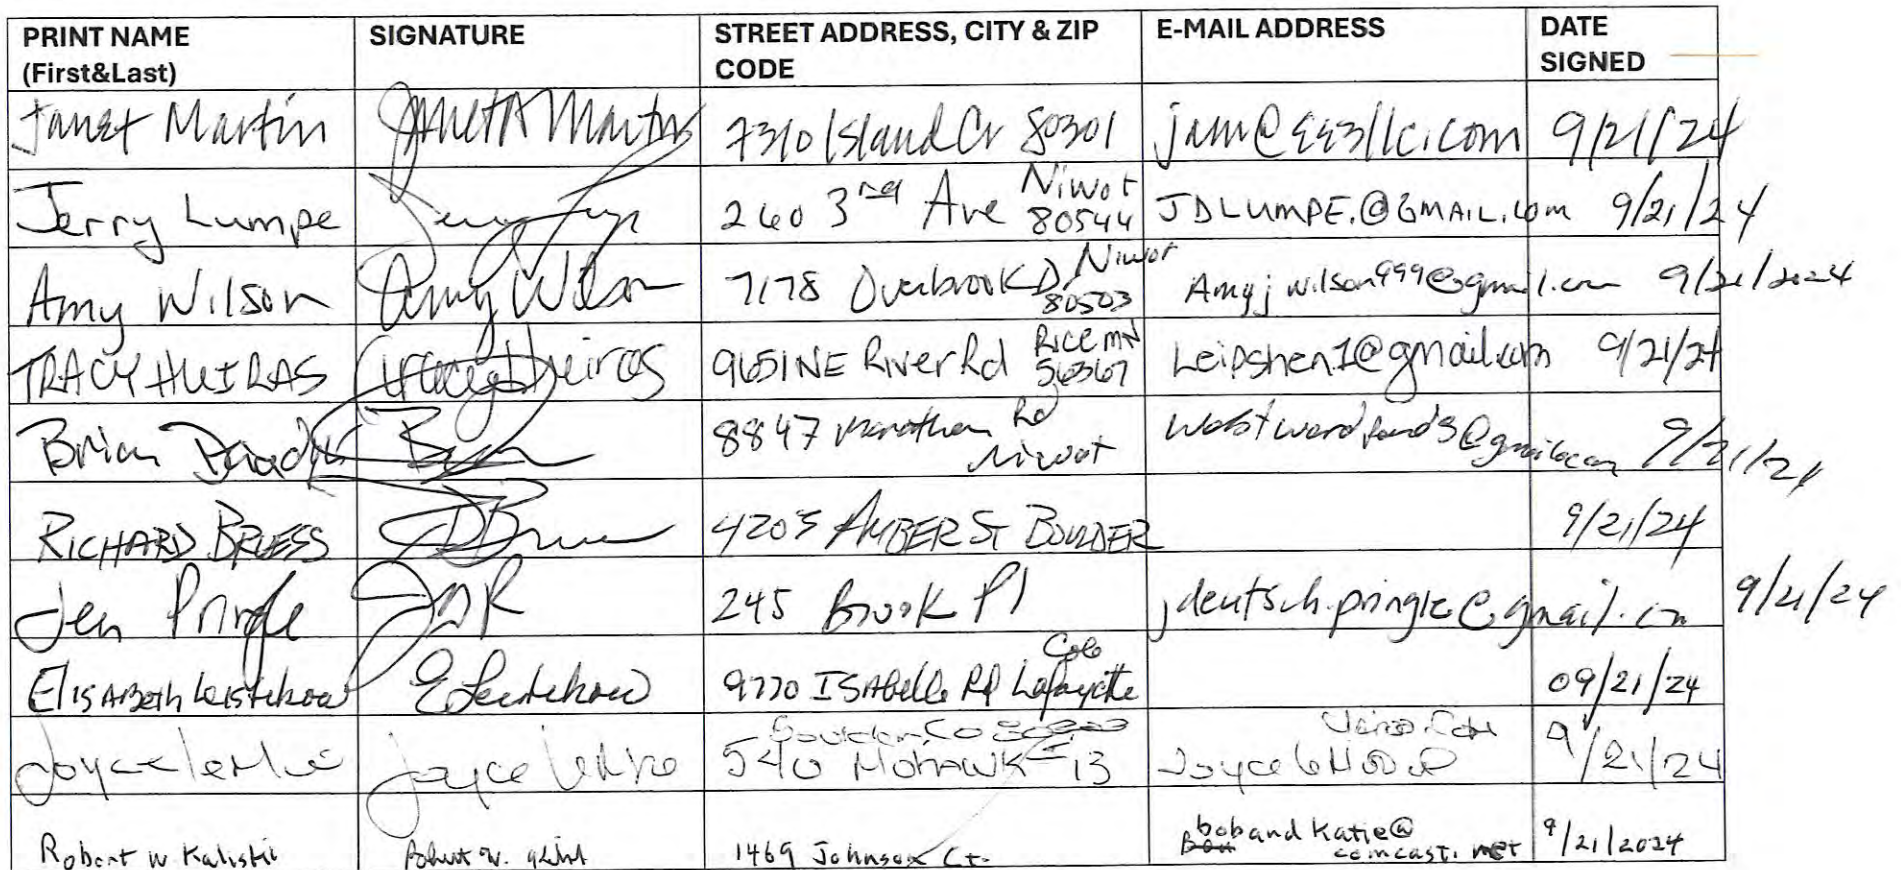 PRINT NAME (First&Last) SIGNATURE STREET ADDRESS, CITY & ZIP CODE E-MAIL ADDRESS DATE SIGNED
Janet Martin Janet A Martin 7310 Island Cr 80301 9/21/24
Jerry Lumpe 260 3rd Ave Niwot 80544 JDLUMPE.@GMAIL.com 9/21/24
Amy Wilson Amy Wilson 7178 Overbrook Dr Niwot 80503 Amyjwilson999@gmail.com 9/21/2024
TRACY HUIRAS Tracy Huiras 9651 NE River Rd Rice MN 56367 Leipshen1@gmail.com 9/21/24
Brian 8847 Marathon Rd Niwot 9/21/24
RICHARD BRUESS 4205 AMBER ST BOULDER 9/21/24
Jen Pringle 245 Brook Pl jdeutsch.pringle@gmail.cm 9/21/24
Elisabeth Leistikow E Leistikow 9770 ISAbelle Rd Lafayette Colo 09/21/24
Joyce Joyce 540 MOHAWK 13 Boulder, Co 9/21/24
Robert W. Robert W. 1469 Johnson Ct. bobandkatie@comcast.net 9/21/2024